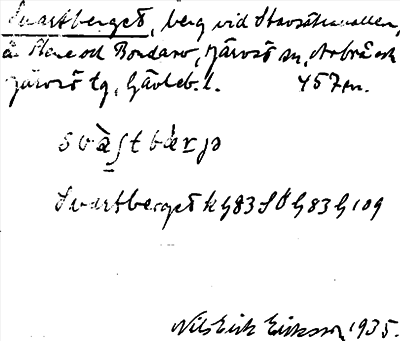 Svartberget, berg vid Stavsätravallen,
å Stene och Bondarv, Järvsö sn, Arbrå och
Järvsö tg, Gävleb. l. 457 m.
svàʃtbærjə
Svartberget k G83 SÖ G83 G109
Nils Erik Eriksson 1935.